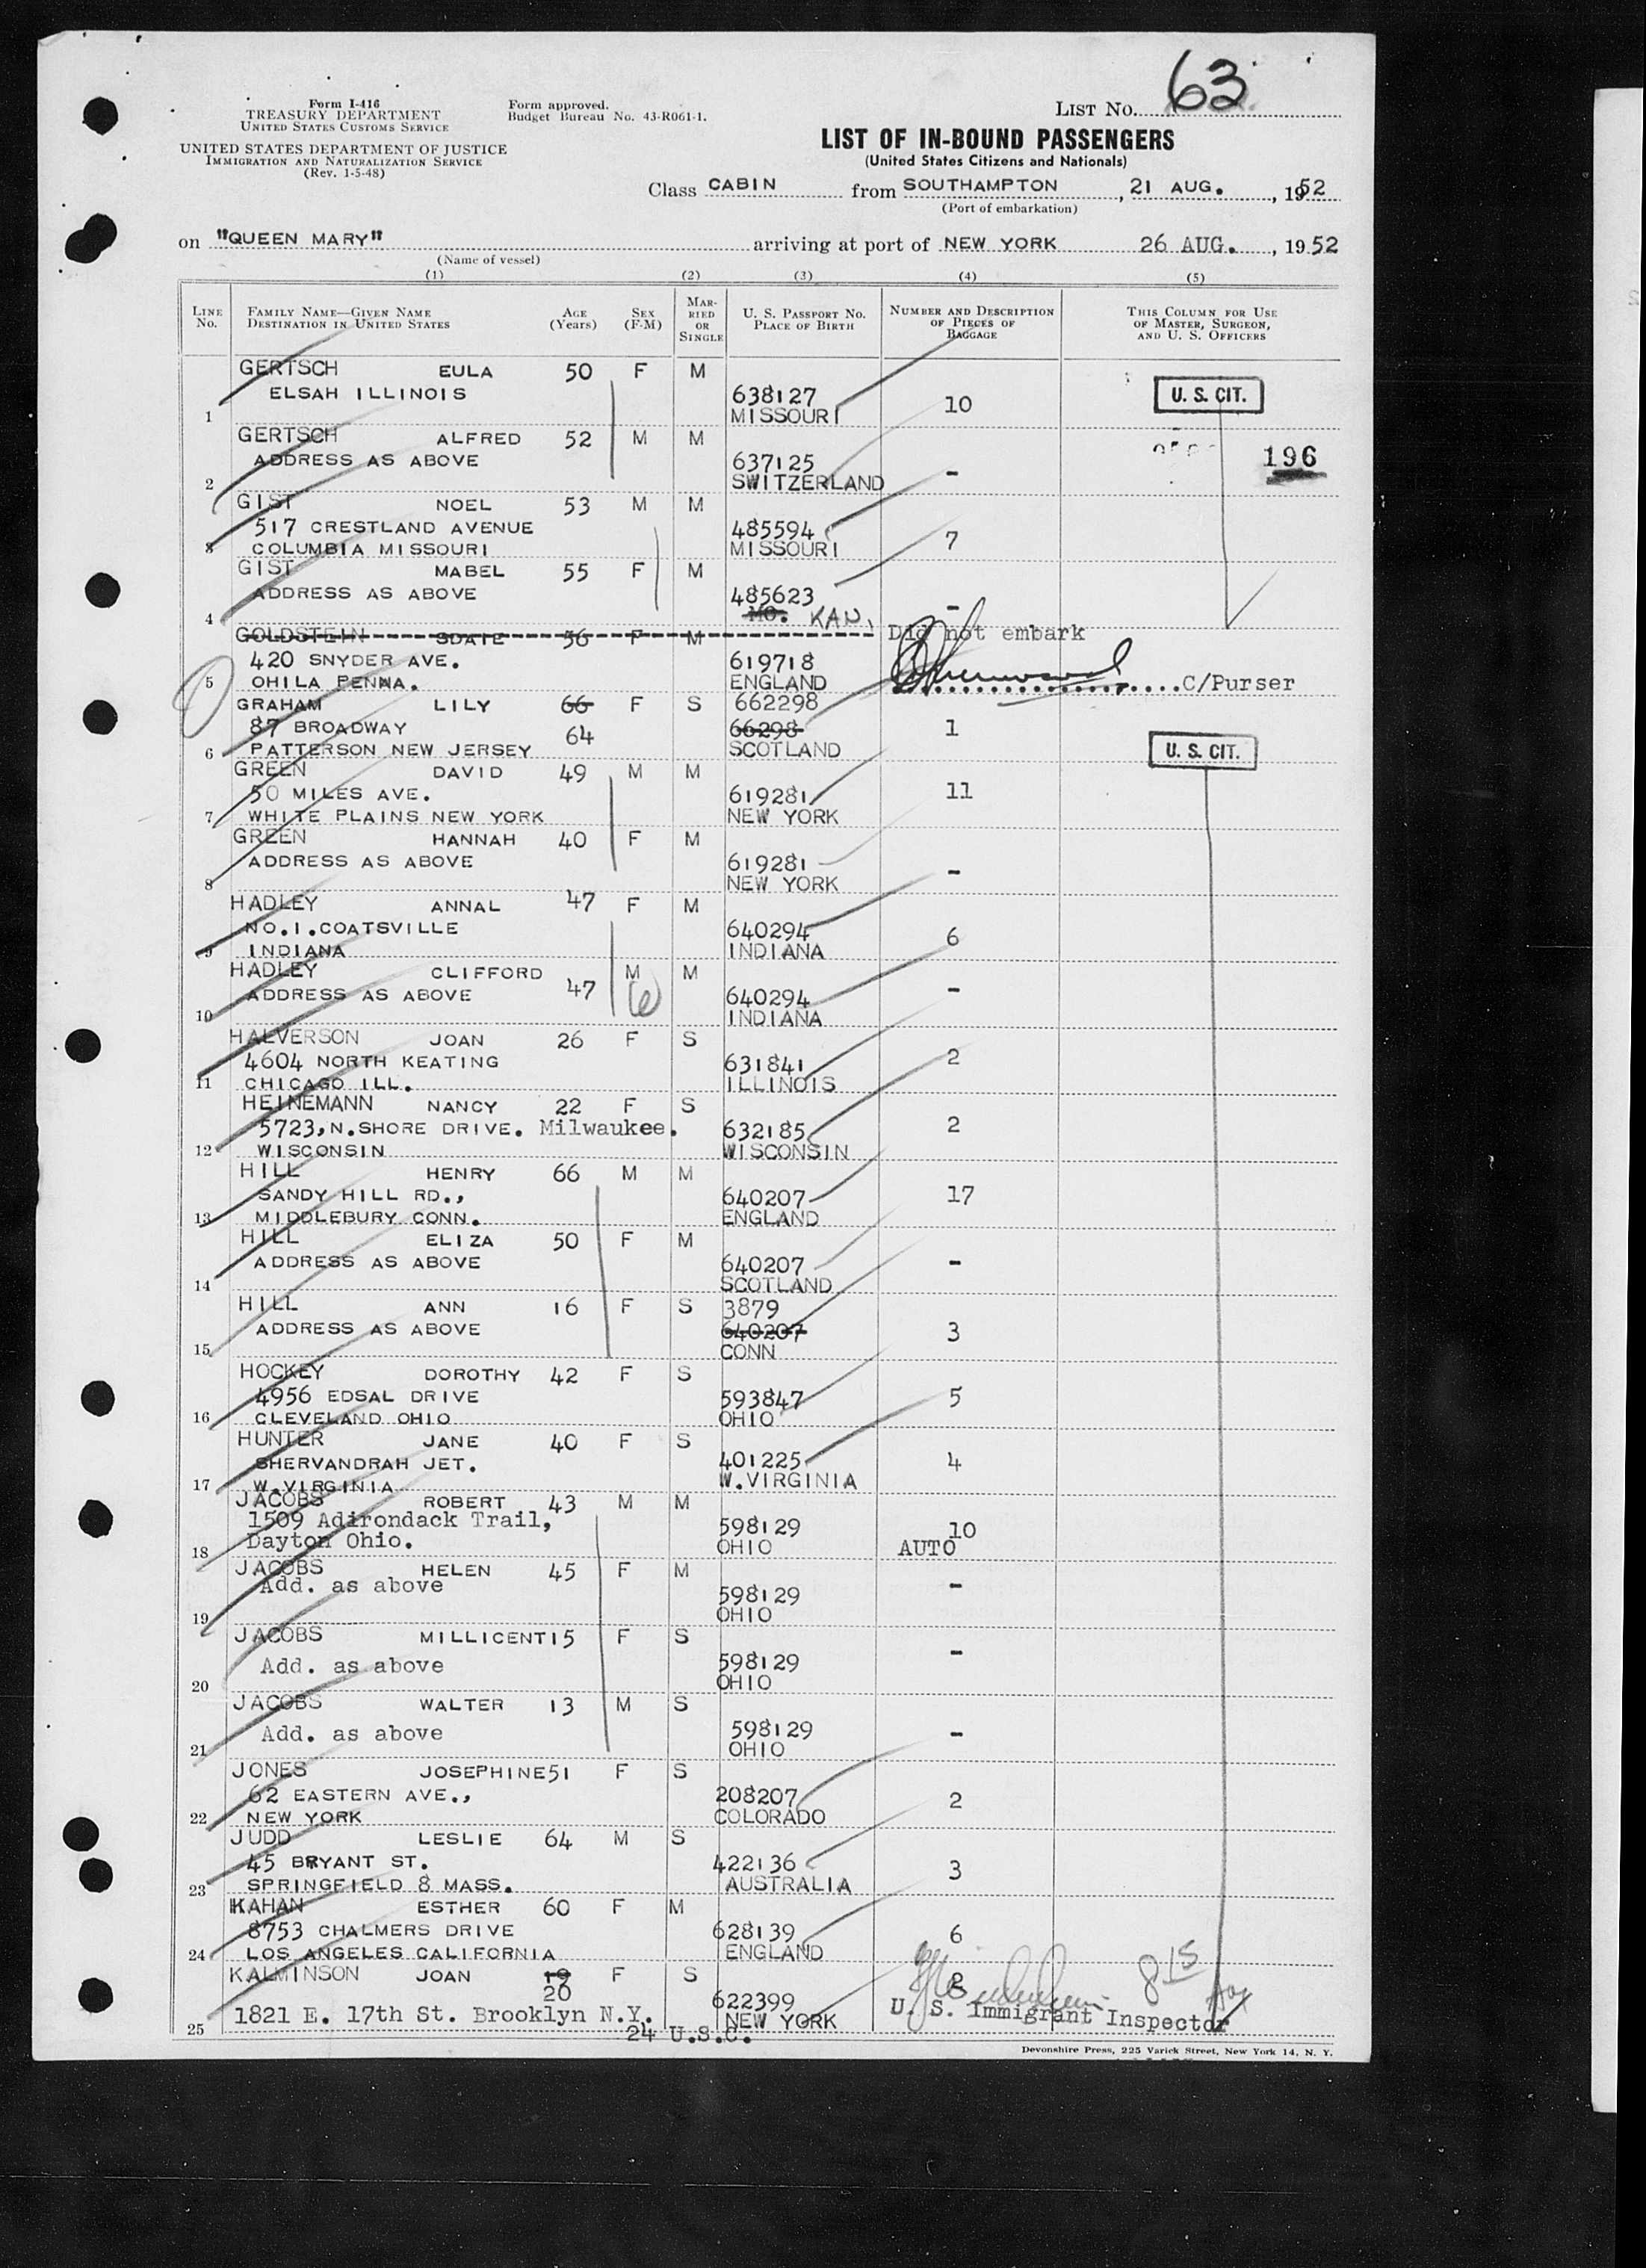 63
Form I-416
TREASURY DEPARTMENT
UNITED STATES CUSTOMS SERVICE
UNITED STATES DEPARTMENT OF JUSTICE
IMMIGRATION AND NATURALIZATION SERVICE
(Rev. 1-5-48)
Form approved.
Budget Bureau No. 43-R061-1.
LIST No.
LIST OF IN-BOUND PASSENGERS
(United States Citizens and Nationals)
Class CABIN from SOUTHAMPTON, 21 AUG., 1952
(Port of embarkation)
on "QUEEN MARY" arriving at port of NEW YORK 26 AUG., 1952
(Name of vessel)
(1) (2) (3) (4) (5)
LINE No. FAMILY NAME—GIVEN NAME DESTINATION IN UNITED STATES AGE (Years) SEX (F-M) MARRIED OR SINGLE U. S. PASSPORT No. PLACE OF BIRTH NUMBER AND DESCRIPTION OF PIECES OF BAGGAGE THIS COLUMN FOR USE OF MASTER, SURGEON, AND U. S. OFFICERS
GERTSCH EULA 50 F M
ELSAH ILLINOIS 638127 U. S. CIT.
1 MISSOURI 10
GERTSCH ALFRED 52 M M
ADDRESS AS ABOVE 637125 196
2 SWITZERLAND -
GIST NOEL 53 M M
517 CRESTLAND AVENUE 485594
3 COLUMBIA MISSOURI MISSOURI 7
GIST MABEL 55 F M
ADDRESS AS ABOVE 485623
4 MO. KAN. -
GOLDSTEIN SDATE 56 F M Did not embark
420 SNYDER AVE. 619718
5 OHILA PENNA. ENGLAND C/Purser
GRAHAM LILY 66 F S 662298
87 BROADWAY 64 66298 1
6 PATTERSON NEW JERSEY SCOTLAND U. S. CIT.
GREEN DAVID 49 M M
50 MILES AVE. 619281 11
7 WHITE PLAINS NEW YORK NEW YORK
GREEN HANNAH 40 F M
ADDRESS AS ABOVE 619281
8 NEW YORK -
HADLEY ANNAL 47 F M
NO.1.COATSVILLE 640294
9 INDIANA INDIANA 6
HADLEY CLIFFORD M M
ADDRESS AS ABOVE 47 640294 -
10 INDIANA
HALVERSON JOAN 26 F S
4604 NORTH KEATING 631841 2
11 CHICAGO ILL. ILLINOIS
HEINEMANN NANCY 22 F S
5723,N.SHORE DRIVE. Milwaukee. 632185 2
12 WISCONSIN WISCONSIN
HILL HENRY 66 M M
SANDY HILL RD., 640207 17
13 MIDDLEBURY CONN. ENGLAND
HILL ELIZA 50 F M
ADDRESS AS ABOVE 640207 -
14 SCOTLAND
HILL ANN 16 F S 3879
ADDRESS AS ABOVE 640207 3
15 CONN
HOCKEY DOROTHY 42 F S
4956 EDSAL DRIVE 593847 5
16 CLEVELAND OHIO OHIO
HUNTER JANE 40 F S
SHERVANDRAH JET. 401225 4
17 W.VIRGINIA W.VIRGINIA
JACOBS ROBERT 43 M M
1509 Adirondack Trail, 598129 10
18 Dayton Ohio. OHIO AUTO
JACOBS HELEN 45 F M
Add. as above 598129 -
19 OHIO
JACOBS MILLICENT 15 F S
Add. as above 598129 -
20 OHIO
JACOBS WALTER 13 M S
Add. as above 598129 -
21 OHIO
JONES JOSEPHINE 51 F S
62 EASTERN AVE., 208207 2
22 NEW YORK COLORADO
JUDD LESLIE 64 M S
45 BRYANT ST. 422136 3
23 SPRINGFIELD 8 MASS. AUSTRALIA
KAHAN ESTHER 60 F M
8753 CHALMERS DRIVE 628139 6
24 LOS ANGELES CALIFORNIA ENGLAND
KALMINSON JOAN 19 F S 8 815
20 622399
25 1821 E. 17th St. Brooklyn N.Y. NEW YORK U. S. Immigrant Inspector
24 U.S.C.
Devonshire Press, 225 Varick Street, New York 14, N. Y.